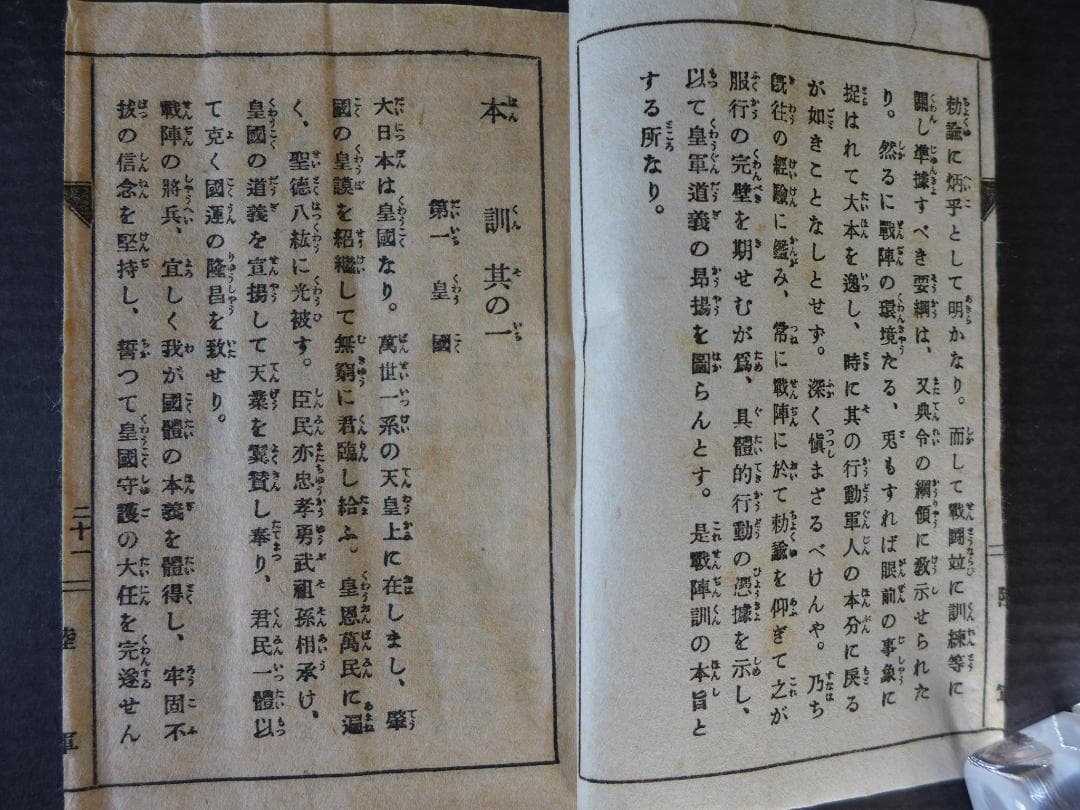 勅諭に炳乎として明かなり。而して戰鬪竝に訓練等に
關し準據すべき要綱は、又典令の綱領に敎示せられた
り。然るに戰陣の環境たる、兎もすれば眼前の事象に
捉はれて大本を逸し、時に其の行動軍人の本分に戾る
が如きことなしとせず。深く愼まざるべけんや。乃ち
旣往の經驗に鑑み、常に戰陣に於て勅諭を仰ぎて之が
服行の完璧を期せむが爲、具體的行動の憑據を示し、
以て皇軍道義の昂揚を圖らんとす。是戰陣訓の本旨と
する所なり。
本訓其の一
第一 皇國
大日本は皇國なり。萬世一系の天皇上に在しまし、肇
國の皇謨を紹繼して無窮に君臨し給ふ。皇恩萬民に遍
く、聖德八紘に光被す。臣民亦忠孝勇武祖孫相承け、
皇國の道義を宣揚して天業を翼贊し奉り、君民一體以
て克く國運の隆昌を致せり。
戰陣の將兵、宜しく我が國體の本義を體得し、牢固不
拔の信念を堅持し、誓つて皇國守護の大任を完遂せん
二十一
陸軍